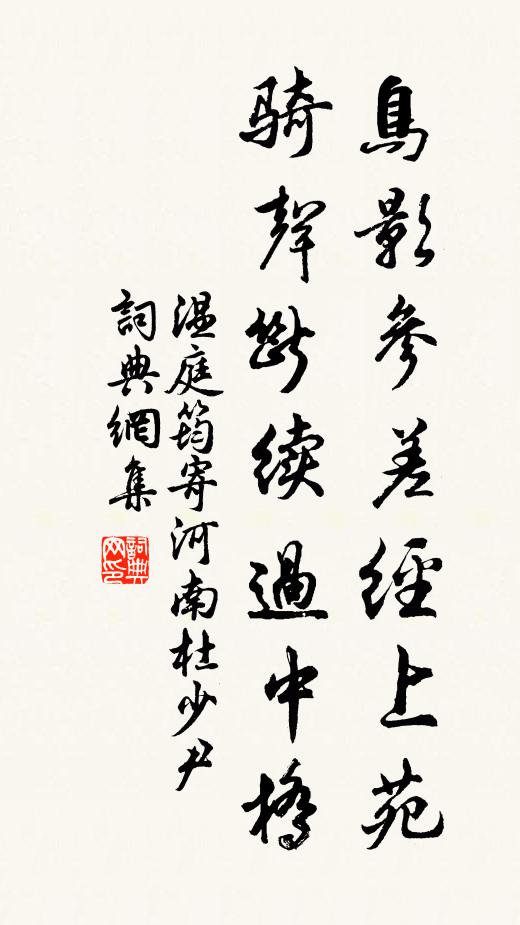 鳥影參差經上苑
騎聲斷續過中橋
溫庭筠寄河南杜少尹
詞典網集
詞典
网印